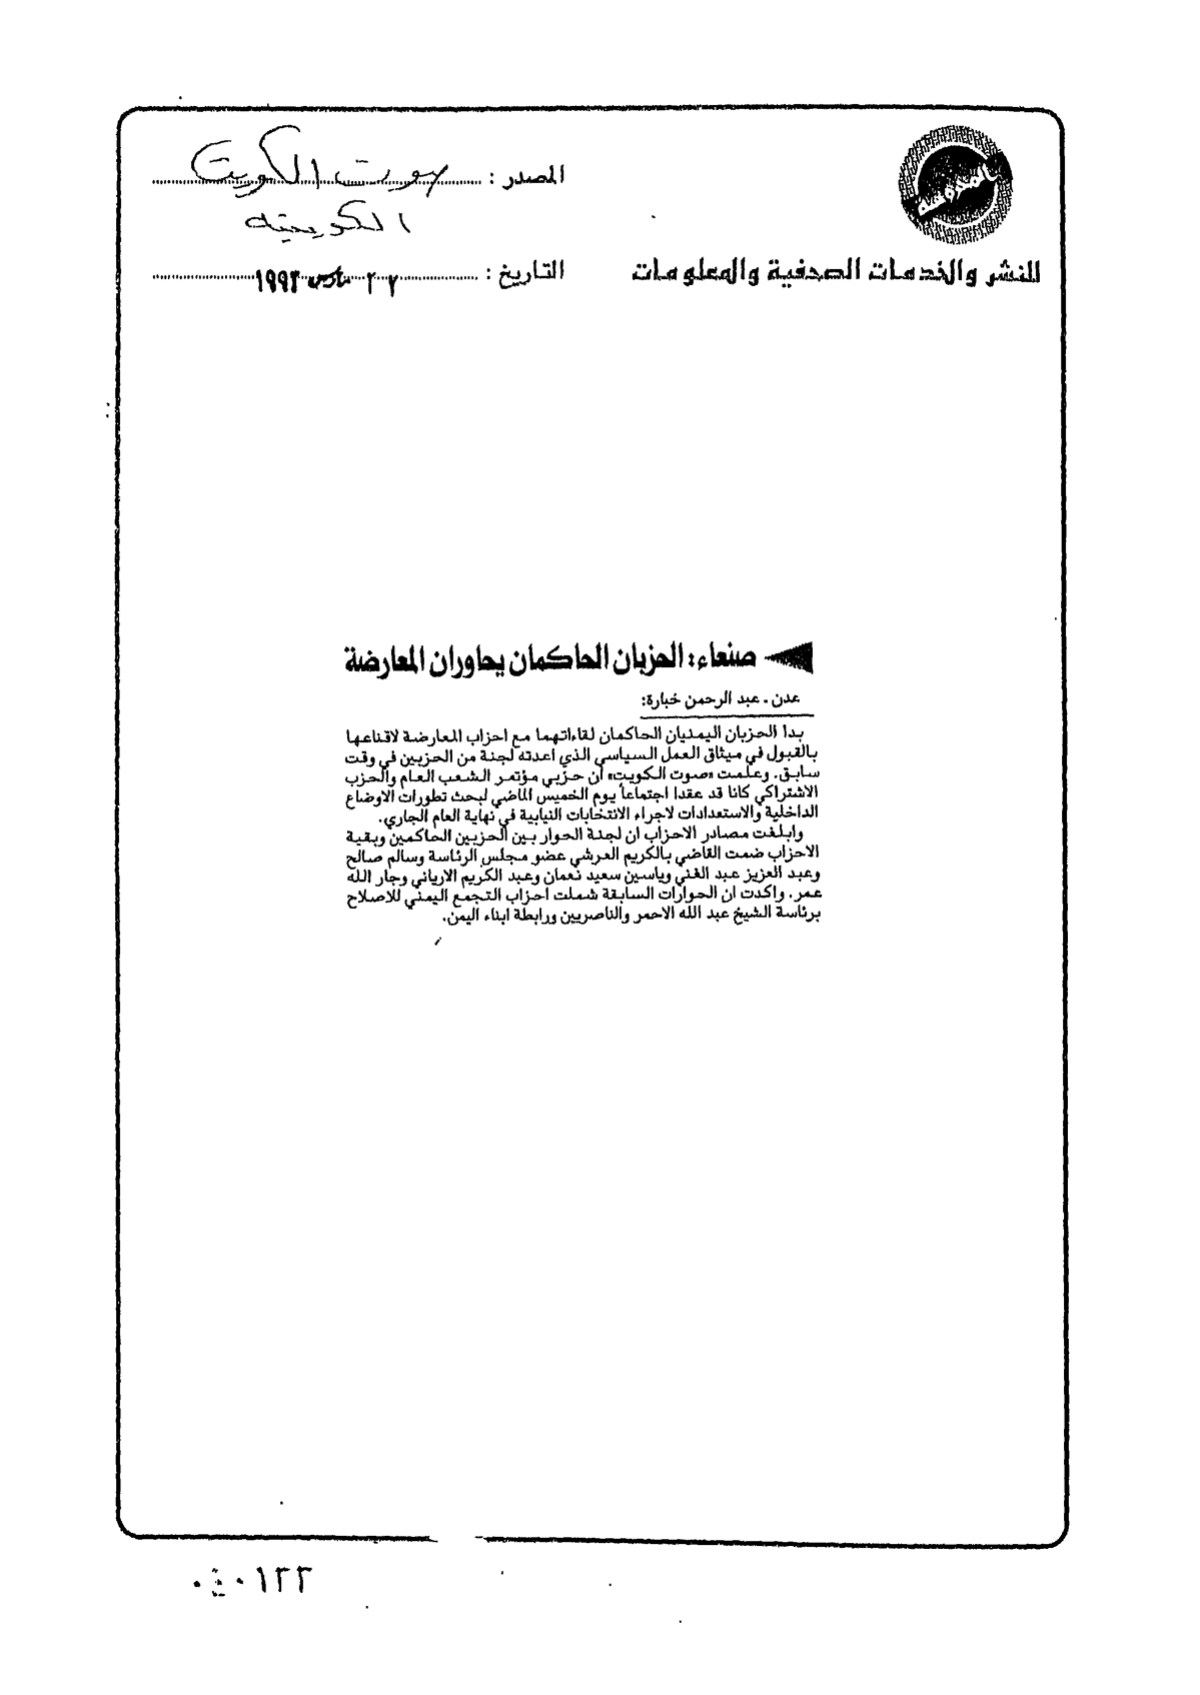 المصدر : صوت الكويت
الكويتية
للنشر والخدمات الصحفية والمعلومات
التاريخ : ٢٧ مارس ١٩٩٢
صنعاء: الحزبان الحاكمان يحاوران المعارضة
عدن ـ عبد الرحمن خبارة:
بدا الحزبان اليمنيان الحاكمان لقاءاتهما مع احزاب المعارضة لاقناعها
بالقبول في ميثاق العمل السياسي الذي اعدته لجنة من الحزبين في وقت
سابق. وعلمت «صوت الكويت» ان حزبي مؤتمر الشعب العام والحزب
الاشتراكي كانا قد عقدا اجتماعاً يوم الخميس الماضي لبحث تطورات الاوضاع
الداخلية والاستعدادات لاجراء الانتخابات النيابية في نهاية العام الجاري.
وابلغت مصادر الاحزاب ان لجنة الحوار بين الحزبين الحاكمين وبقية
الاحزاب ضمت القاضي بالكريم العرشي عضو مجلس الرئاسة وسالم صالح
وعبد العزيز عبد الغني وياسين سعيد نعمان وعبد الكريم الارياني وجار الله
عمر. واكدت ان الحوارات السابقة شملت احزاب التجمع اليمني للاصلاح
برئاسة الشيخ عبد الله الاحمر والناصريين ورابطة ابناء اليمن.